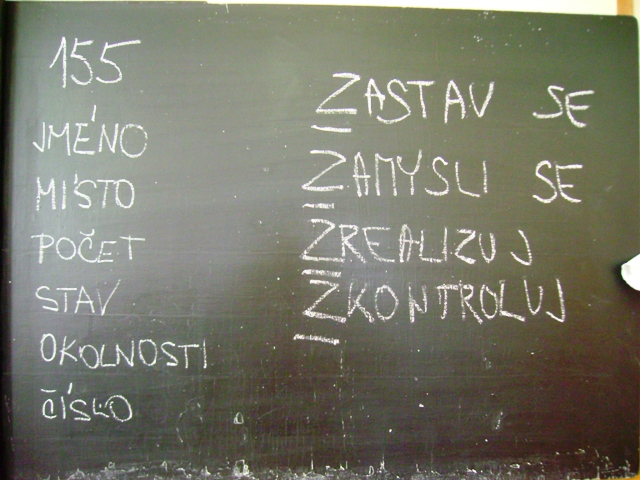 155
JMÉNO
MÍSTO
POČET
STAV
OKOLNOSTI
ČÍSLO
ZASTAV SE
ZAMYSLI SE
ZREALIZUJ
ZKONTROLUJ